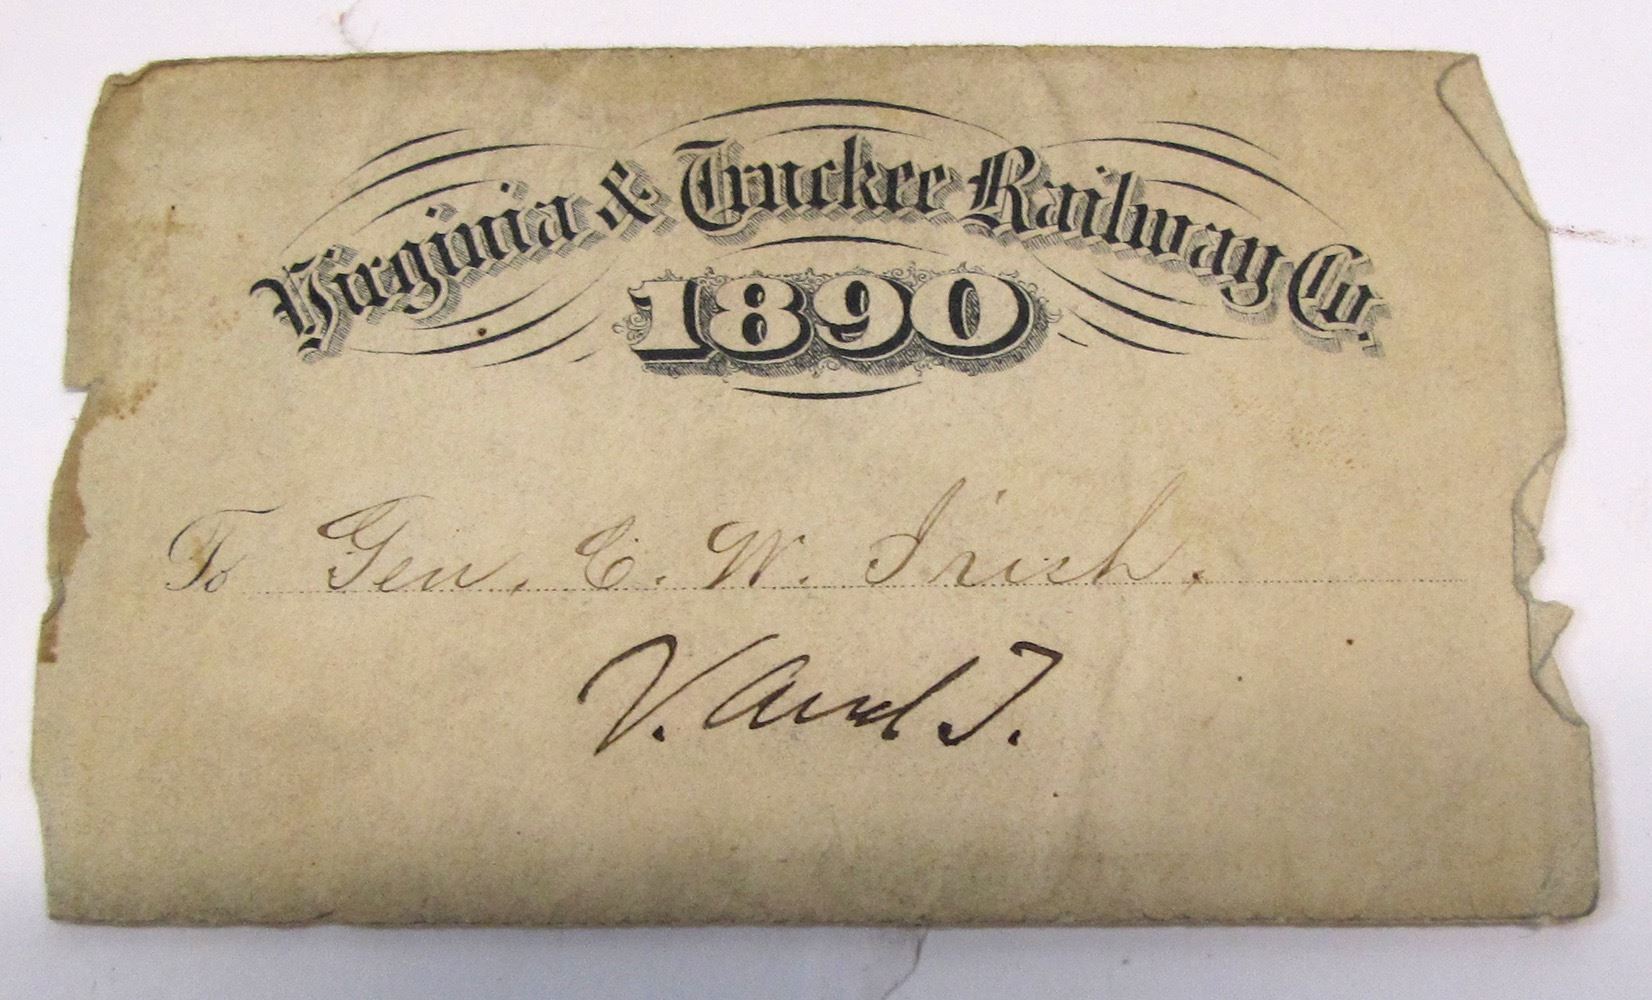 Virginia & Truckee Railway Co.
1890
To Gen. C. W. Irish.
V. and T.